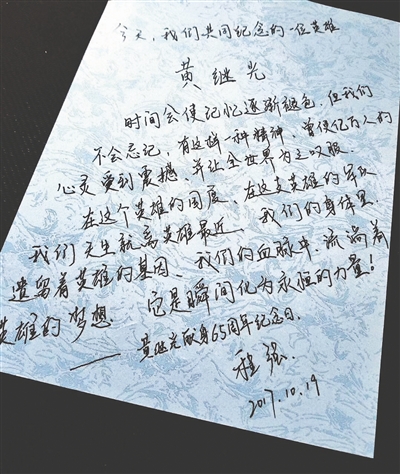 今天，我们共同纪念的一位英雄
黄继光
时间会使记忆逐渐褪色，但我们
不会忘记，有这样一种精神，曾使亿万人的
心灵受到震撼，并让全世界为之叹服。
在这个英雄的国度，在这支英雄的军队
我们天生就离英雄最近，我们的身体里
遗留着英雄的基因，我们的血脉中，流淌着
英雄的梦想。它是瞬间化为永恒的力量！
——黄继光献身65周年纪念日。
程强
2017.10.19